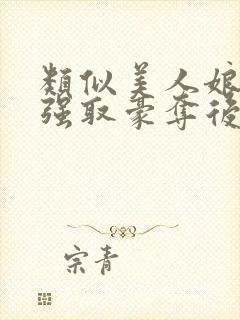 類似美人娘
强取豪奪後
宗青